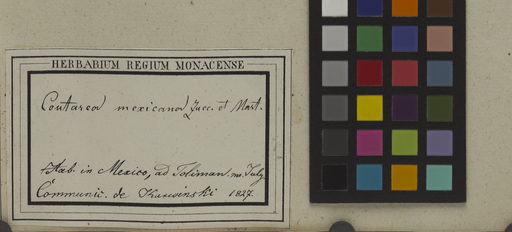 HERBARIUM REGIUM MONACENSE
Coutarea mexicana Zucc. et Mart.
Hab. in Mexico, ad Toliman. m. July
Communic. de Karwinski 1827.